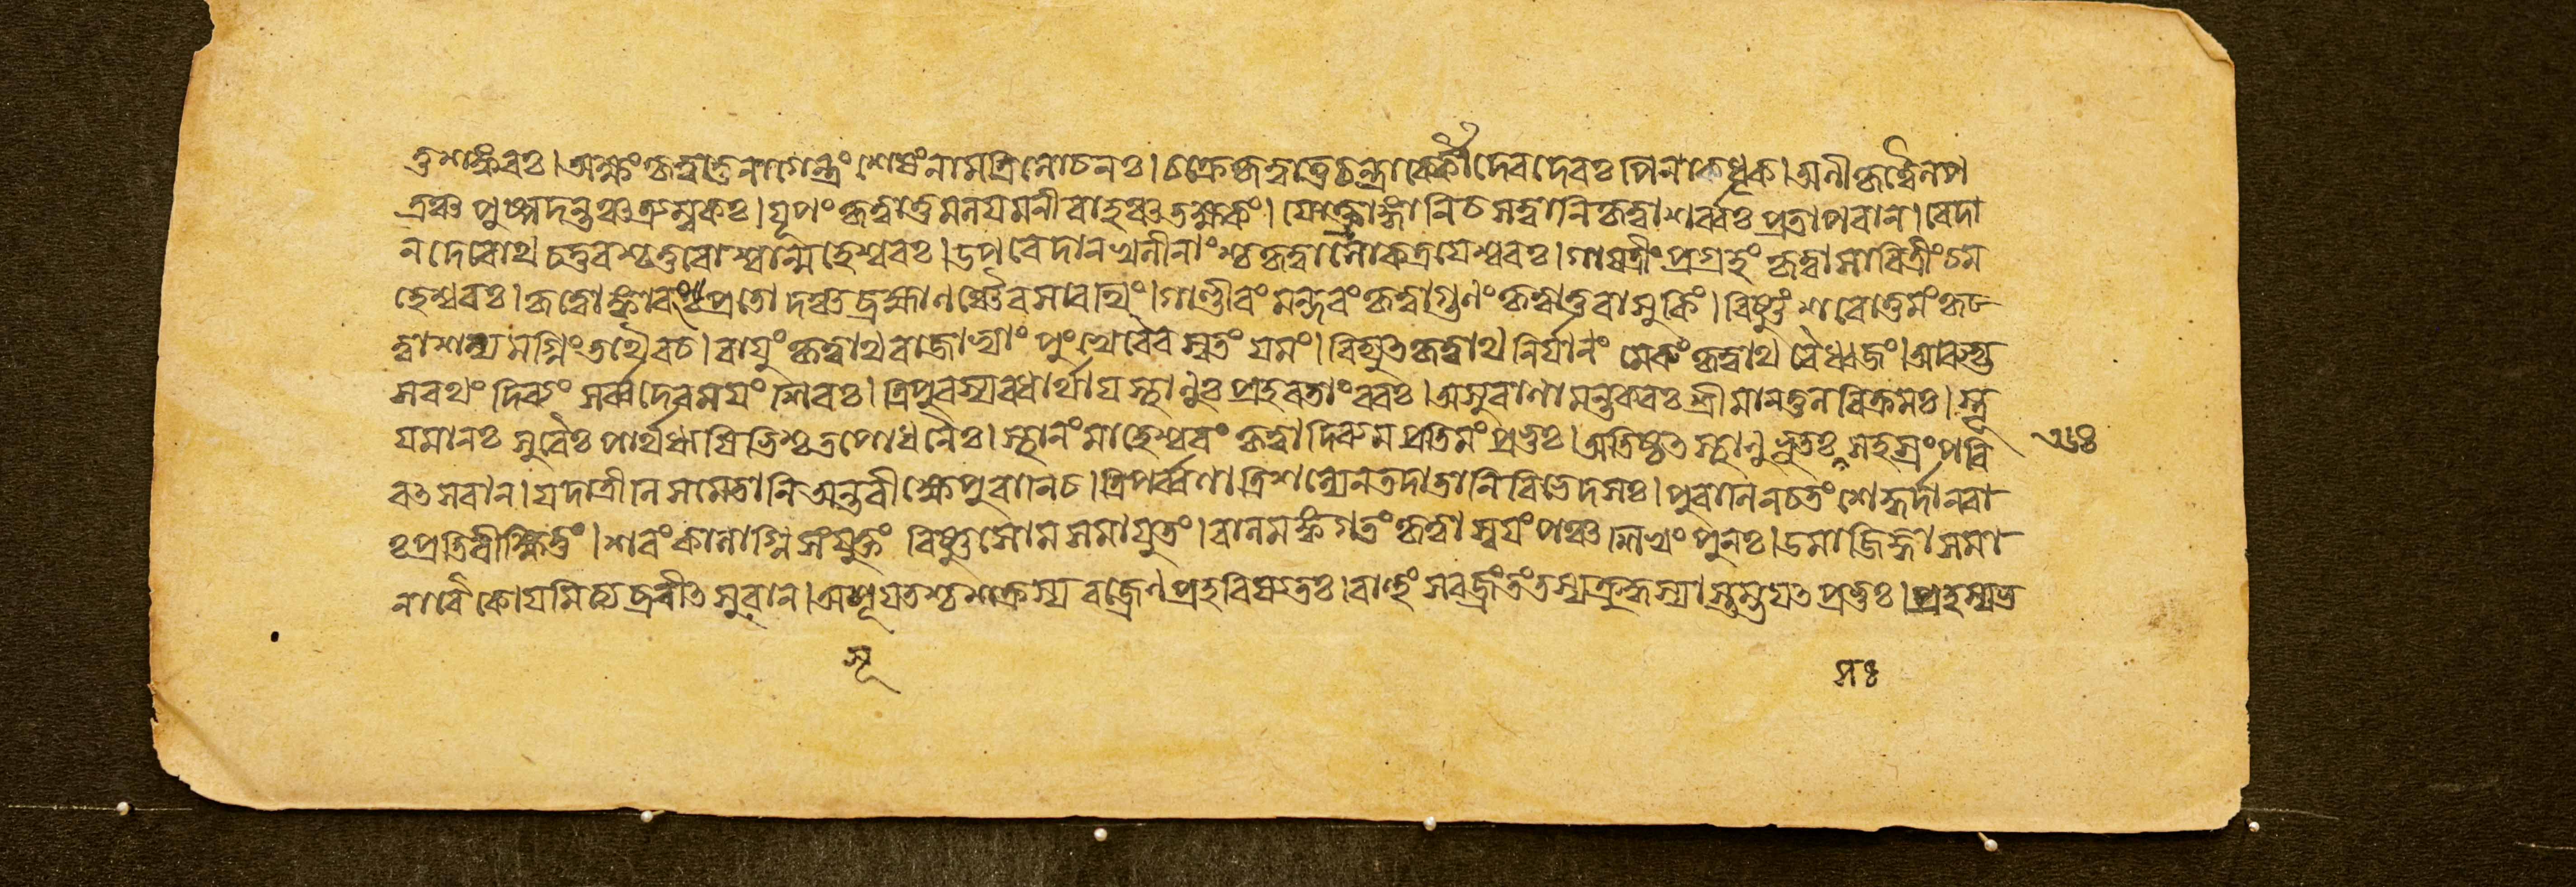 তু শঙ্করঃ। অক্ষং কৃত্বাতু নাগেন্দ্রং শেষং নাম ত্রিলোচনঃ। চক্রে কৃত্বাতু চন্দ্রার্কৌ দেবদেবঃ পিনাকধৃক্। অনী কৃত্বৈলপ
ত্রঞ্চ পুষ্পদন্তঞ্চ ত্র্যম্বকঃ। যূপং কৃত্বাতু মলয়মনীবাহঞ্চ তক্ষকং। যোক্ত্রাঙ্গানি চ সত্বানি কৃত্বা শর্ব্বঃ প্রতাপবান্। বেদা
ন দেবোথ চতুরশ্চতুরোশ্বান্মহেশ্বরঃ। উপবেদান্খলীনাংশ্চ কৃত্বা লোকত্রয়েশ্বরঃ। গায়ত্রীং প্রগ্রহং কৃত্বা সাবিত্রীং চ ম
হেশ্বরঃ। কৃত্বোঙ্কারং প্রতোদঞ্চ ব্রহ্মাণঞ্চৈব সারথিং। গাণ্ডীবং মন্দরং কৃত্বা গুণং কৃত্বাতু বাসুকিং। বিষ্ণুং শরোত্তমং কৃ
ত্বা শল্যমগ্নিং তথৈবচ। বায়ুং কৃত্বাথ বাজাভ্যাং পুংখে বৈবস্বতং যমং। বিদ্যুত কৃত্বাথ নির্যানং মেরুং কৃত্বাথ বৈ ধ্বজং। আরুহ্য
স রথং দিব্যং সর্ব্বদেবময়ং শিবঃ। ত্রিপুরস্য বধার্থায় স্থাণুঃ প্রহরতাং বরঃ। অসুরাণামন্তকরঃ শ্রীমানতুলবিক্রমঃ। স্তূ
যমানঃ সুরৈঃ পার্থ ঋষিভিশ্চ তপোধনৈঃ। স্থানং মাহেশ্বরং কৃত্বা দিব্যমপ্রতিমং প্রভুঃ। অতিষ্ঠত স্থানুভূতঃ সহস্রং পরি
বৎসরান্। যদা ত্রীনি সমেতানি অন্তরীক্ষে পুরানিচ। ত্রিপর্ব্বণা ত্রিশল্যেন তদা তানি বিভেদ সঃ। পুরানি নচ তং শেকুর্দানবা
ঃ প্রতিবীক্ষিতুং। শরং কালাগ্নিসংযুক্তং বিষ্ণুসোমসমাযুতং। বালমঙ্কগতং কৃত্বা স্বয়ং পঞ্চশিখং পুনঃ। উমা জিজ্ঞাসমা
না বৈ কোযমিত্যব্রবীত সুরান্। অসূযতশ্চ শক্রস্য বজ্রেণ প্রহরিষ্যতঃ। বাহুং সবজ্রং তং তস্য ক্রুদ্ধস্যাস্তম্ভয়ত প্রভুঃ। প্রহস্য
সূ
সঃ